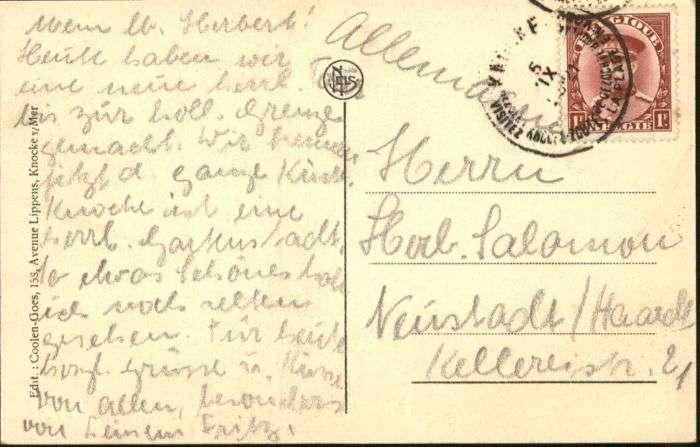 Mein lb. Herbert!
Heute haben wir
eine neue herrl.
bis zur holl. Grenze
gemacht. Wir kennen
jetzt d. ganze Küste.
Knocke ist eine
herrl. Gartenstadt,
so etwas Schönes hab
ich noch selten
gesehen. Für heute
herzl. Grüsse u. Küsse
von allen, besonders
von Deinem Fritz.
Edit.: Coolen-Goes, 158, Avenue Lippens, Knocke s/Mer
Allemagne
Herrn
Herb. Salomon
Neustadt/Haardt
Kellereistr. 21
BELGIQUE
1F
1F